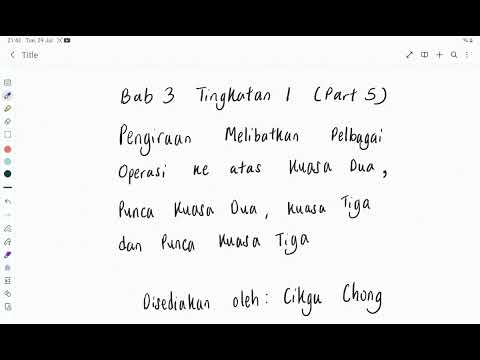 21:42 Tue, 29 Jul
Title
Bab 3 Tingkatan 1 (Part 5)
Pengiraan Melibatkan Pelbagai
Operasi ke atas Kuasa Dua,
Punca Kuasa Dua, Kuasa Tiga
dan Punca Kuasa Tiga
Disediakan oleh: Cikgu Chong